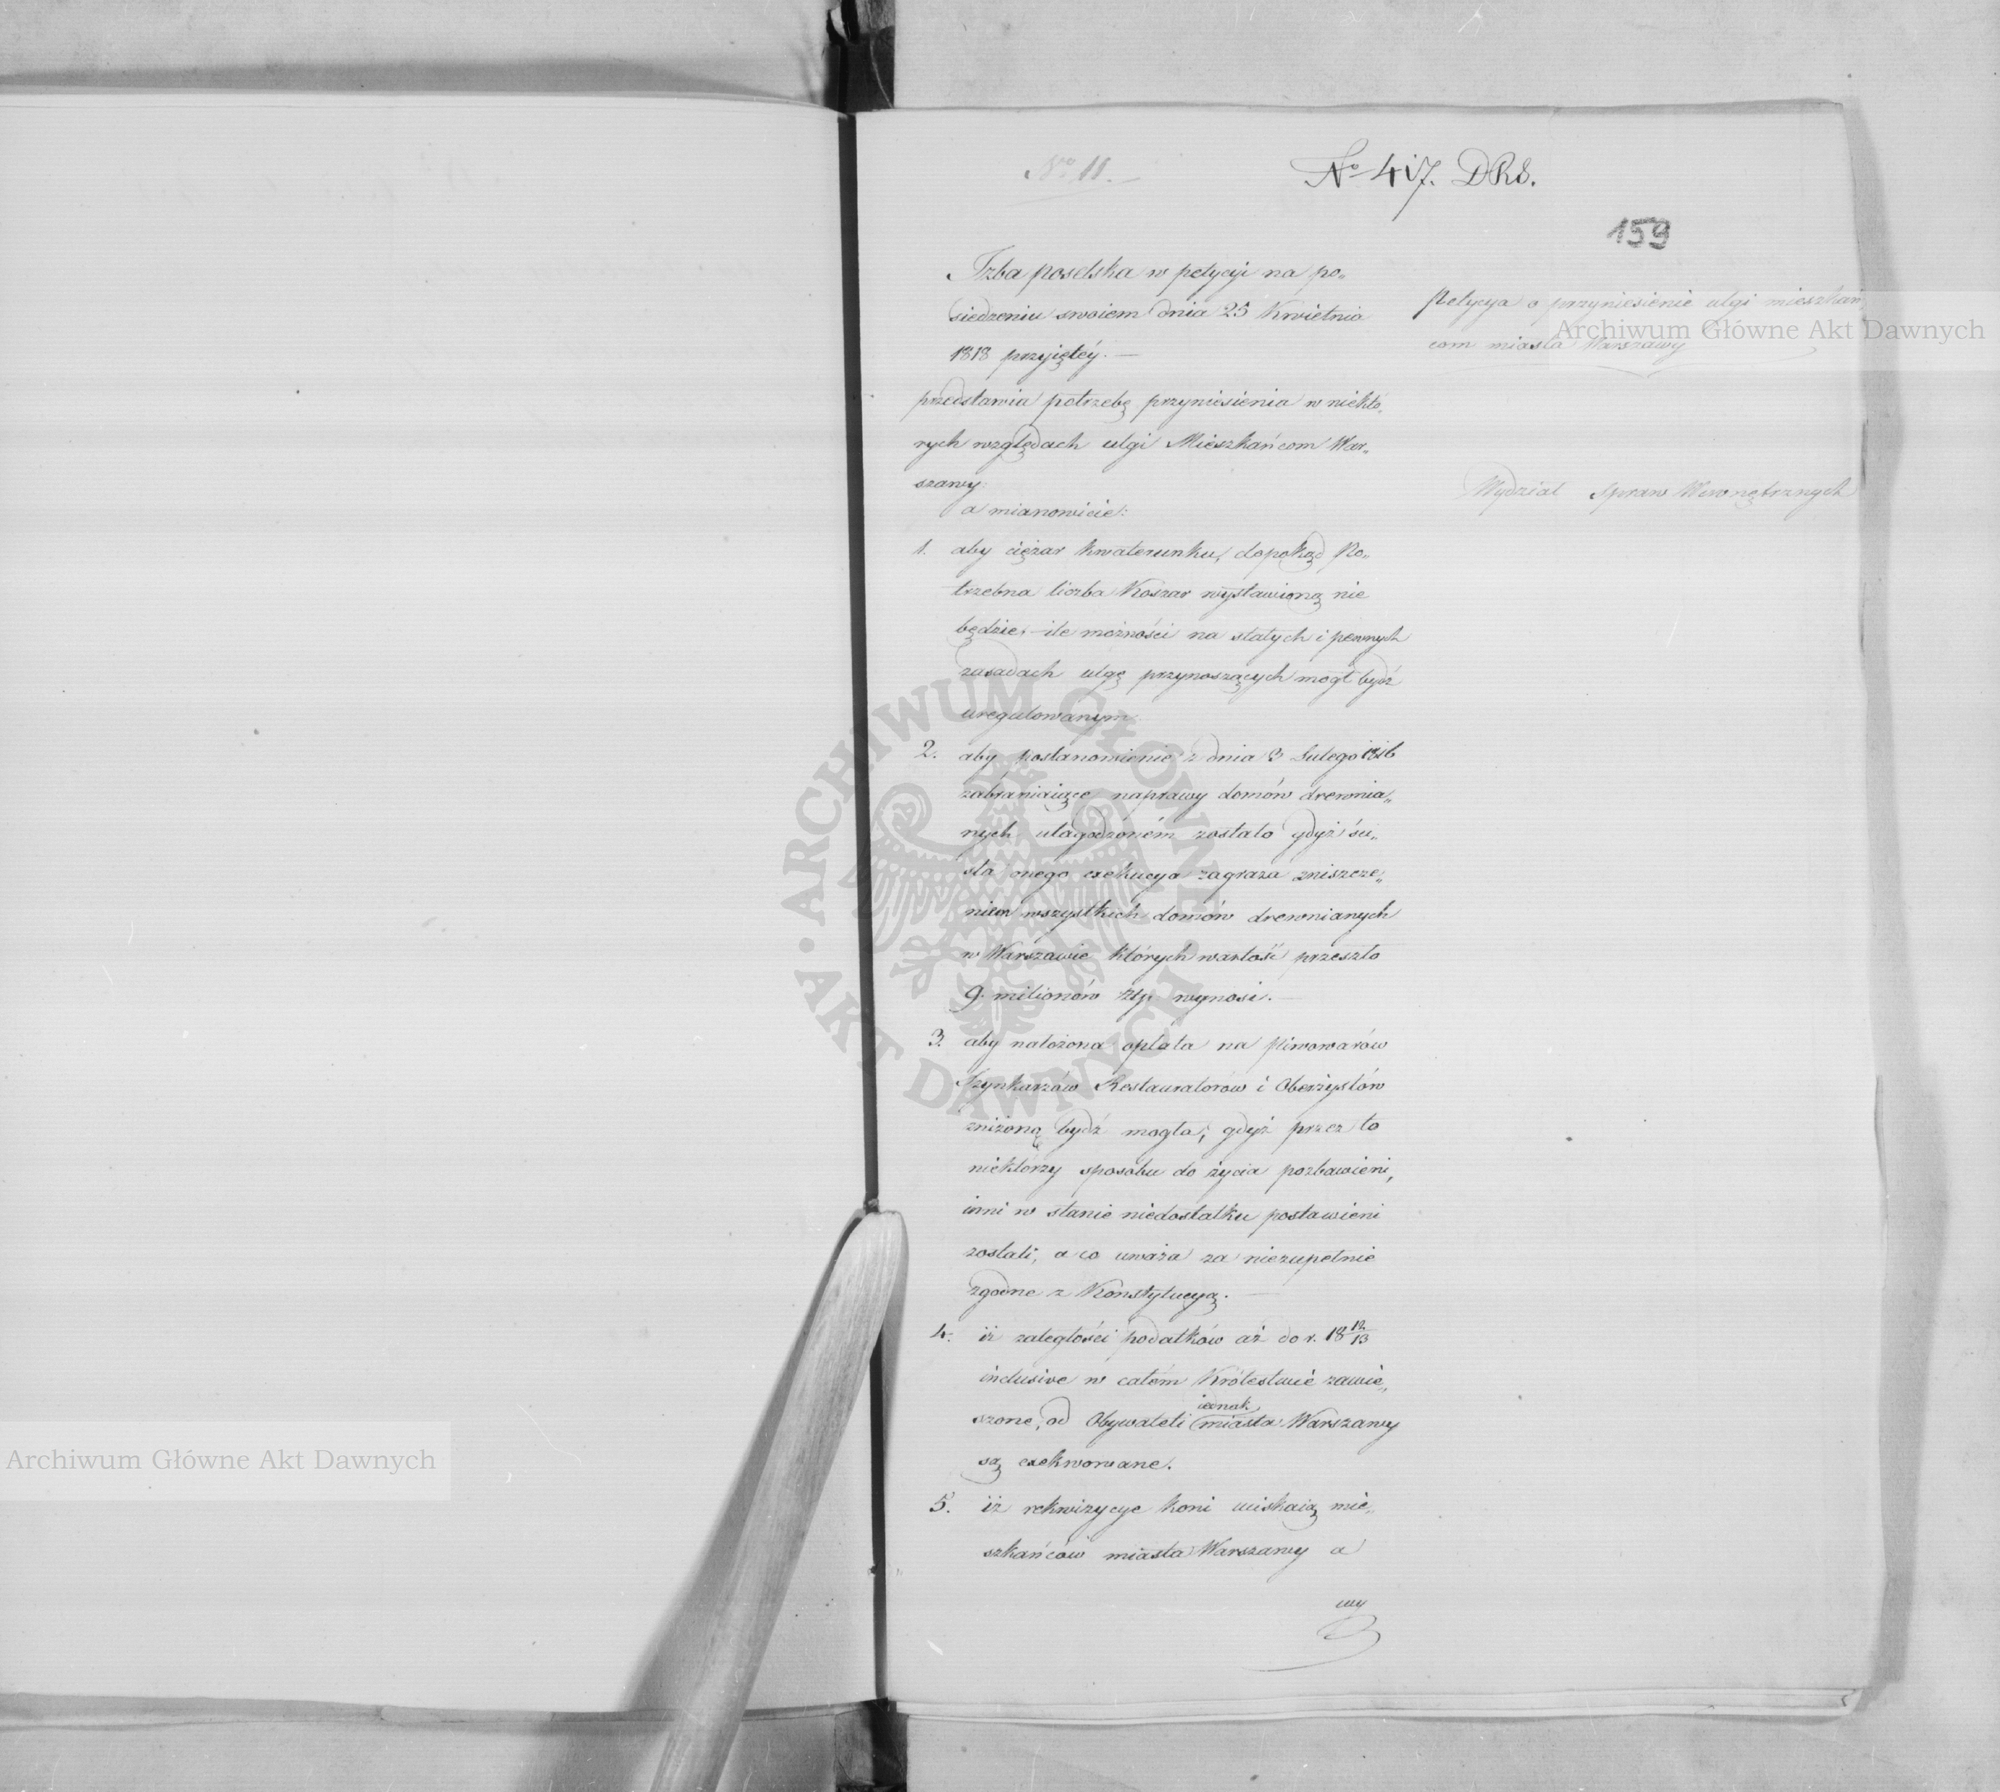 No 11.
No 417. DRS.
159
Izba poselska w petycji na po„
siedzeniu swoiem dnia 25 Kwietnia
1818 przyiętéy. —
przedstawia potrzebę przyniesienia w niektó„
rych względach ulgi Mieszkańcom War„
szawy:
a mianowicie:
1. aby ciężar kwaterunku, dopokąd Po„
trzebna liczba Koszar wystawioną nie
będzie, ile możności na stałych i pewnych
zasadach ulgę przynoszących mógł bydź
uregulowanym
2. aby postanowienie z dnia 3 Lutego 1816
zabraniaiące naprawy domów drewnia„
nych ułagodzoném zostało gdyż ści„
sła onego exekucya zagraża zniszcze„
niem wszystkich domów drewnianych
w Warszawie których wartość przeszło
9. milionów złp. wynosi. —
3. aby nałożona opłata na Piwowarów
Szynkarzów Restauratorów i Oberżystów
zniżoną bydź mogła; gdyż przez to
niektórzy sposobu do życia pozbawieni,
inni w stanie niedostatku postawieni
zostali, a co uważa za niezupełnie
zgodne z Konstytucyą. —
4. iż zaległości podatków aż do r. 18 12/13
inclusive w całém Królestwie zawie„
szone, od Obywateli iednak miasta Warszawy
są exekwowane.
5. iż rekwizycye koni uciskaią mie„
szkańców miasta Warszawy a
wy
Petycya o przyniesienie ulgi mieszkań
com miasta Warszawy
Wydział Spraw Wewnętrznych
Archiwum Główne Akt Dawnych
Archiwum Główne Akt Dawnych
ARCHIWUM GŁÓWNE • AKT DAWNYCH •